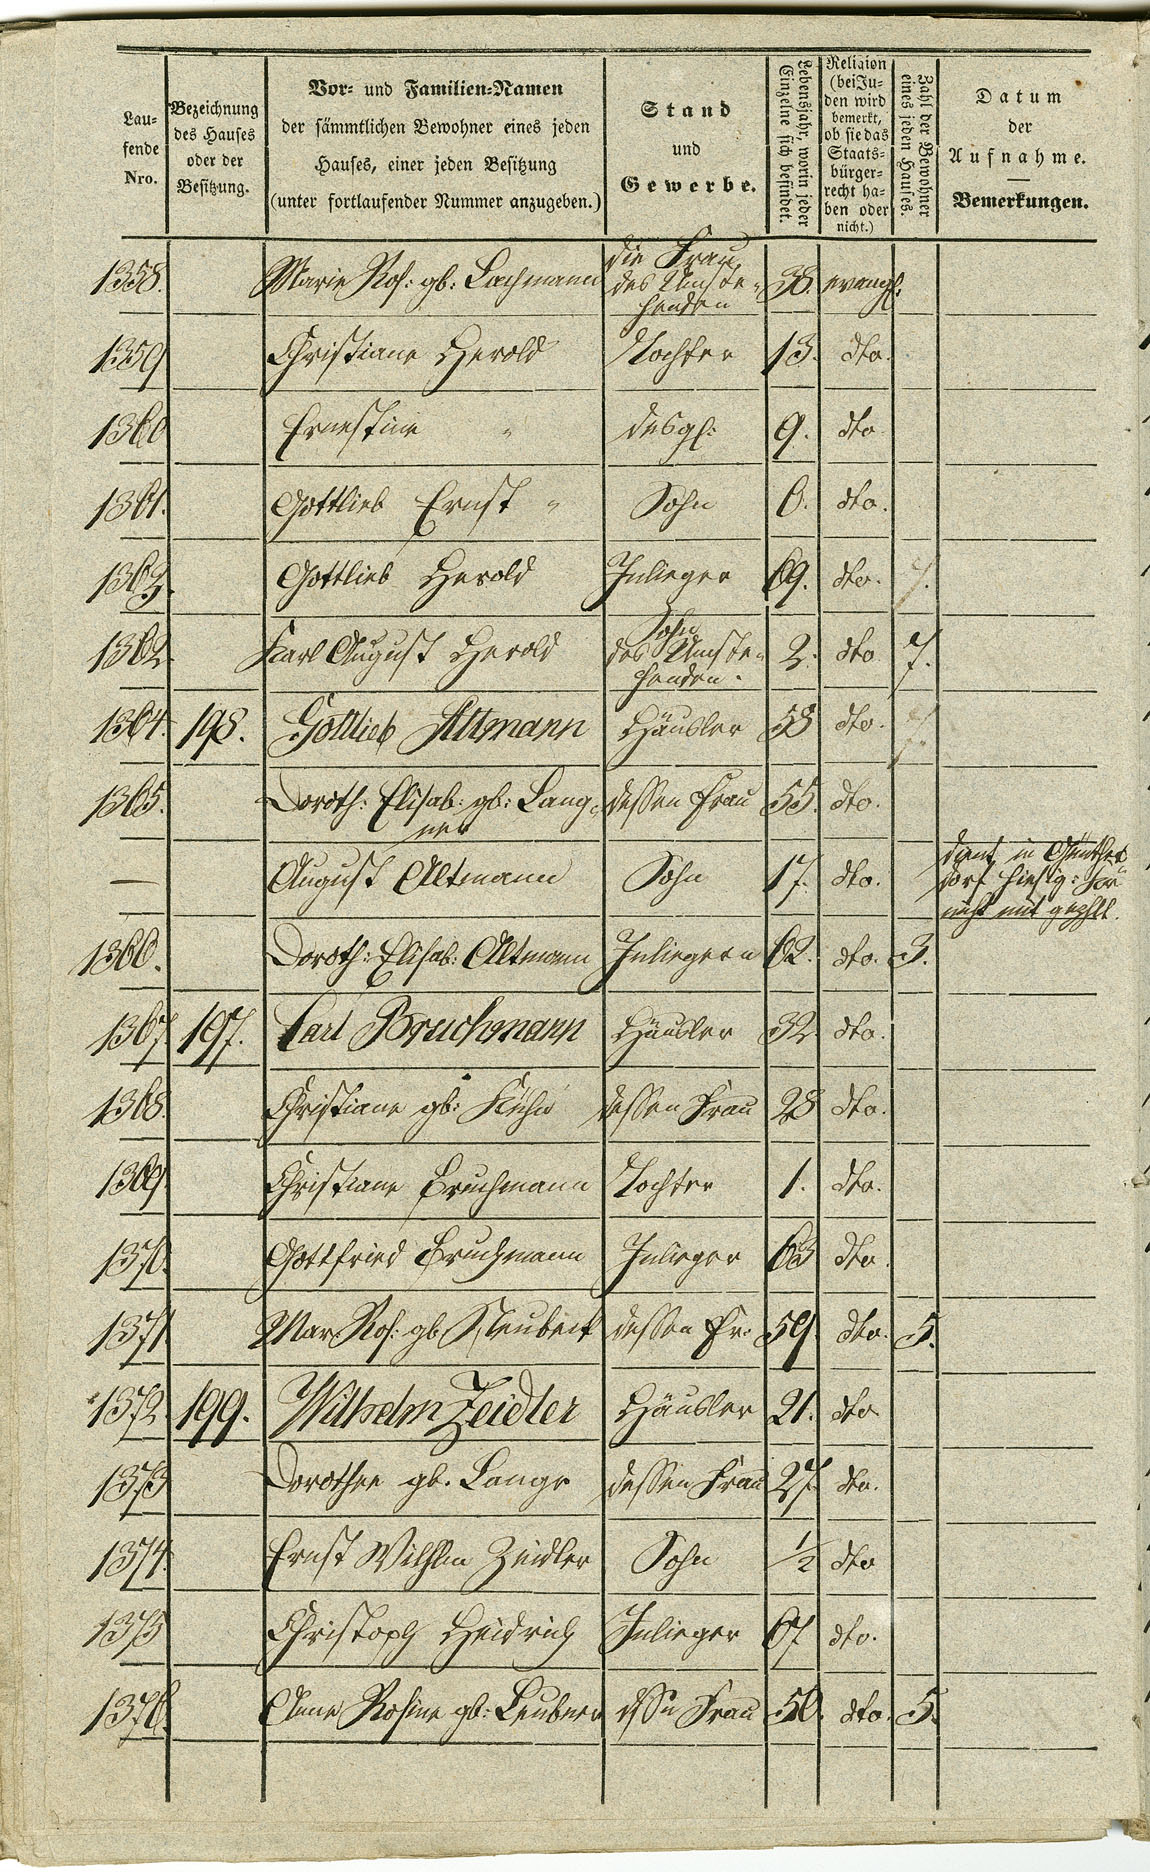 Laufende Nro. | Bezeichnung des Hauses oder der Besitzung. | Vor- und Familien-Namen der sämmtlichen Bewohner eines jeden Hauses, einer jeden Besitzung (unter fortlaufender Nummer anzugeben.) | Stand und Gewerbe. | Lebensjahr, worin jeder Einzelne sich befindet. | Religion (bei Juden wird bemerkt, ob sie das Staatsbürgerrecht haben oder nicht.) | Zahl der Bewohner eines jeden Hauses. | Datum der Aufnahme. — Bemerkungen.
1358. Marie Ros: gb: Lachmann die Frau des Umstehenden 38. evangl.
1359 Christiane Herold Tochter 13. dto.
1360 Ernestine " desgl: 9. dto
1361. Gottlieb Ernst " Sohn 6. dto.
1363. Gottlieb Herold Inlieger 69. dto. 7.
1362. Karl August Herold Sohn des Umstehenden. 2. dto 7.
1364. 198. Gottlieb Altmann Häusler 58 dto.
1365. Doroth: Elisab: gb: Langner dessen Frau 55. dto.
— August Altmann Sohn 17. dto. dient in
1366. Doroth: Elisab: Altmann Inliegern 62. dto. 3.
1367 197. Carl Bruchmann Häusler 32. dto.
1368. Christiane gb: Kühn dessen Frau 28 dto.
1369 Christiane Bruchmann Tochter 1. dto.
1370. Gottfried Bruchmann Inlieger 63 dto.
1371 Mar. Ros: gb. Neubert dessen Fr. 59. dto. 5.
1372. 199. Wilhelm Zeidler Häusler 21. dto.
1373 Dorothee gb. Lange dessen Frau 27. dto.
1374. Ernst Wilhlm Zeidler Sohn 1/2 dto
1375 Christoph Heidrich Inlieger 67 dto.
1376. Anne Rosine gb: Leubner dssn Frau 50. dto. 5.